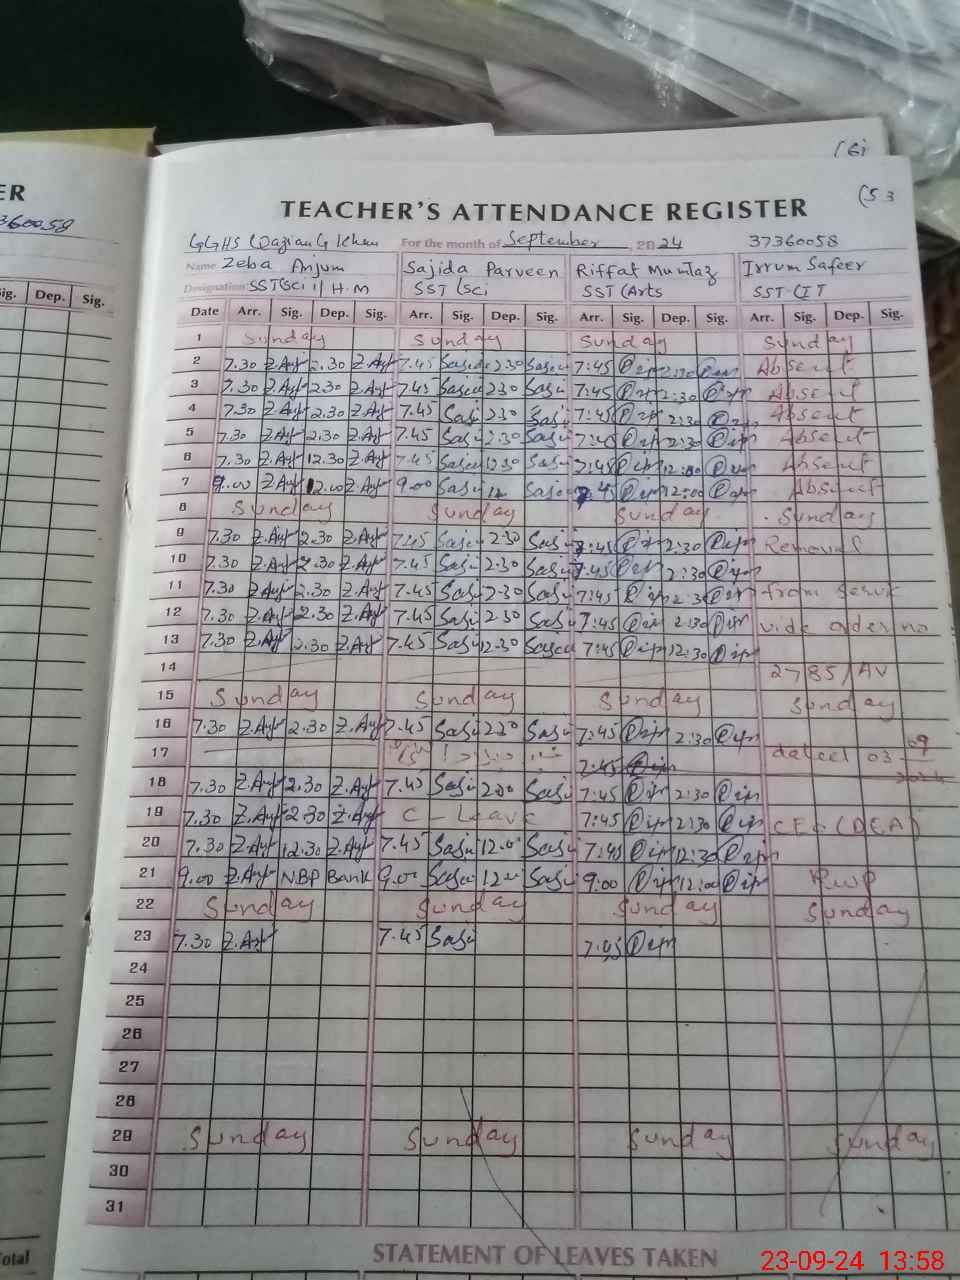 (6)
ER
(53
TEACHER'S ATTENDANCE REGISTER
37360058
GGHS Qazian G Khan For the month of September, 2024 37360058
Name Zeba Anjum Sajida Parveen Riffat Mumtaz Irrum Safeer
Designation SST(Sci) / H.M SST (Sci SST (Arts SST-(IT
Sig. Dep. Sig. Date Arr. Sig. Dep. Sig. Arr. Sig. Dep. Sig. Arr. Sig. Dep. Sig. Arr. Sig. Dep. Sig.
1 Sunday Sunday Sunday Sunday
2 7.30 Z.Anj 2.30 Z.Anj 7.45 Saji 2.30 Saji 7:45 2:30 Absent
3 7.30 Z.Anj 2.30 Z.Anj 7.45 Saji 2.30 Saji 7:45 2:30 Absent
4 7.30 Z.Anj 2.30 Z.Anj 7.45 Saji 2.30 Saji 7:45 2:30 Absent
5 7.30 Z.Anj 2.30 Z.Anj 7.45 Saji 2.30 Saji 7:40 2:30 Absent
6 7.30 Z.Anj 12.30 Z.Anj 7.45 Saji 12.30 Saji 7:45 Absent
7 9.00 Z.Anj 12.00 Z.Anj 9.00 Saji 12 Saji 12:00 Absent
8 Sunday Sunday Sunday Sunday
9 7.30 Z.Anj 2.30 Z.Anj 7.45 Saji 2.30 Saji 7:45 2:30 Removal
10 7.30 Z.Anj 2.30 Z.Anj 7.45 Saji 2.30 Saji 7:45 2:30
11 7.30 Z.Anj 2.30 Z.Anj 7.45 Saji 2.30 Saji 7:45 2:30 from
12 7.30 Z.Anj 2.30 Z.Anj 7.45 Saji 2.30 Saji 7:45 2:30 vide order no
13 7.30 Z.Anj 2.30 Z.Anj 7.45 Saji 12.30 Saji 7:45 12:30
14 2785/AV
15 Sunday Sunday Sunday Sunday
16 7.30 Z.Anj 2.30 Z.Anj 7.45 Saji 2.30 Saji 7:45 2:30
17 7:45 dated 03-09
2024
18 7.30 Z.Anj 2.30 Z.Anj 7.45 Saji Saji 7:45 2:30
19 7.30 Z.Anj 2.30 Z.Anj C-Leave 7:45 2:30 CEO (DEA)
20 7.30 Z.Anj 12.30 Z.Anj 7.45 Saji Saji 7:45 12:30
21 9.00 Z.Anj NBP Bank 9.00 Saji Saji 9:00 12:00 Rwp
22 Sunday Sunday Sunday Sunday
23 7.30 Z.Anj 7.45 Saji 7:45
24
25
26
27
28
29 Sunday Sunday Sunday Sunday
30
31
Total STATEMENT OF LEAVES TAKEN
23-09-24 13:58